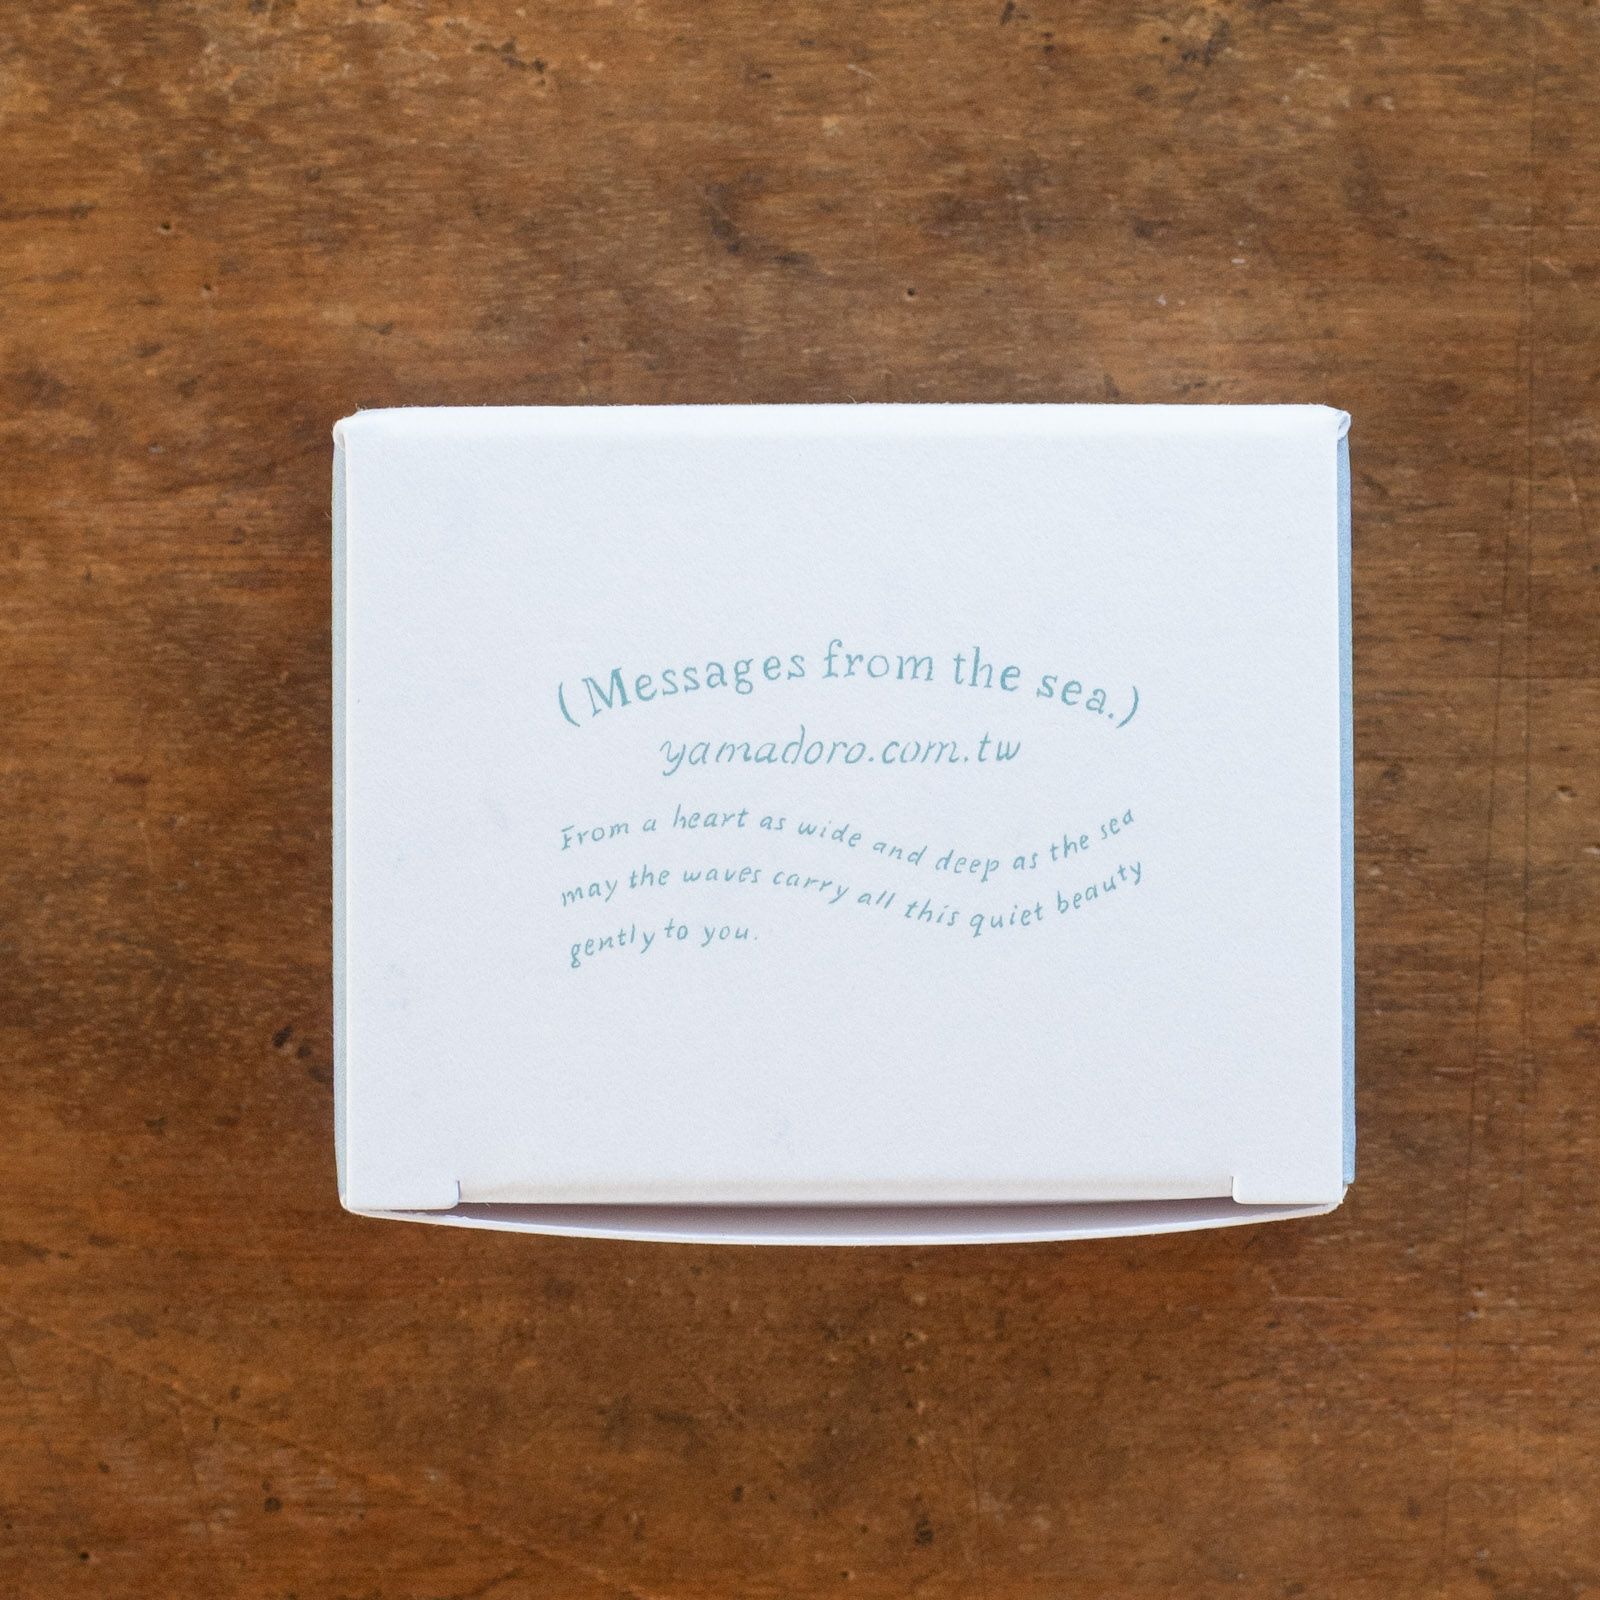 (Messages from the sea.)
yamadoro.com.tw
From a heart as wide and deep as the sea
may the waves carry all this quiet beauty
gently to you.